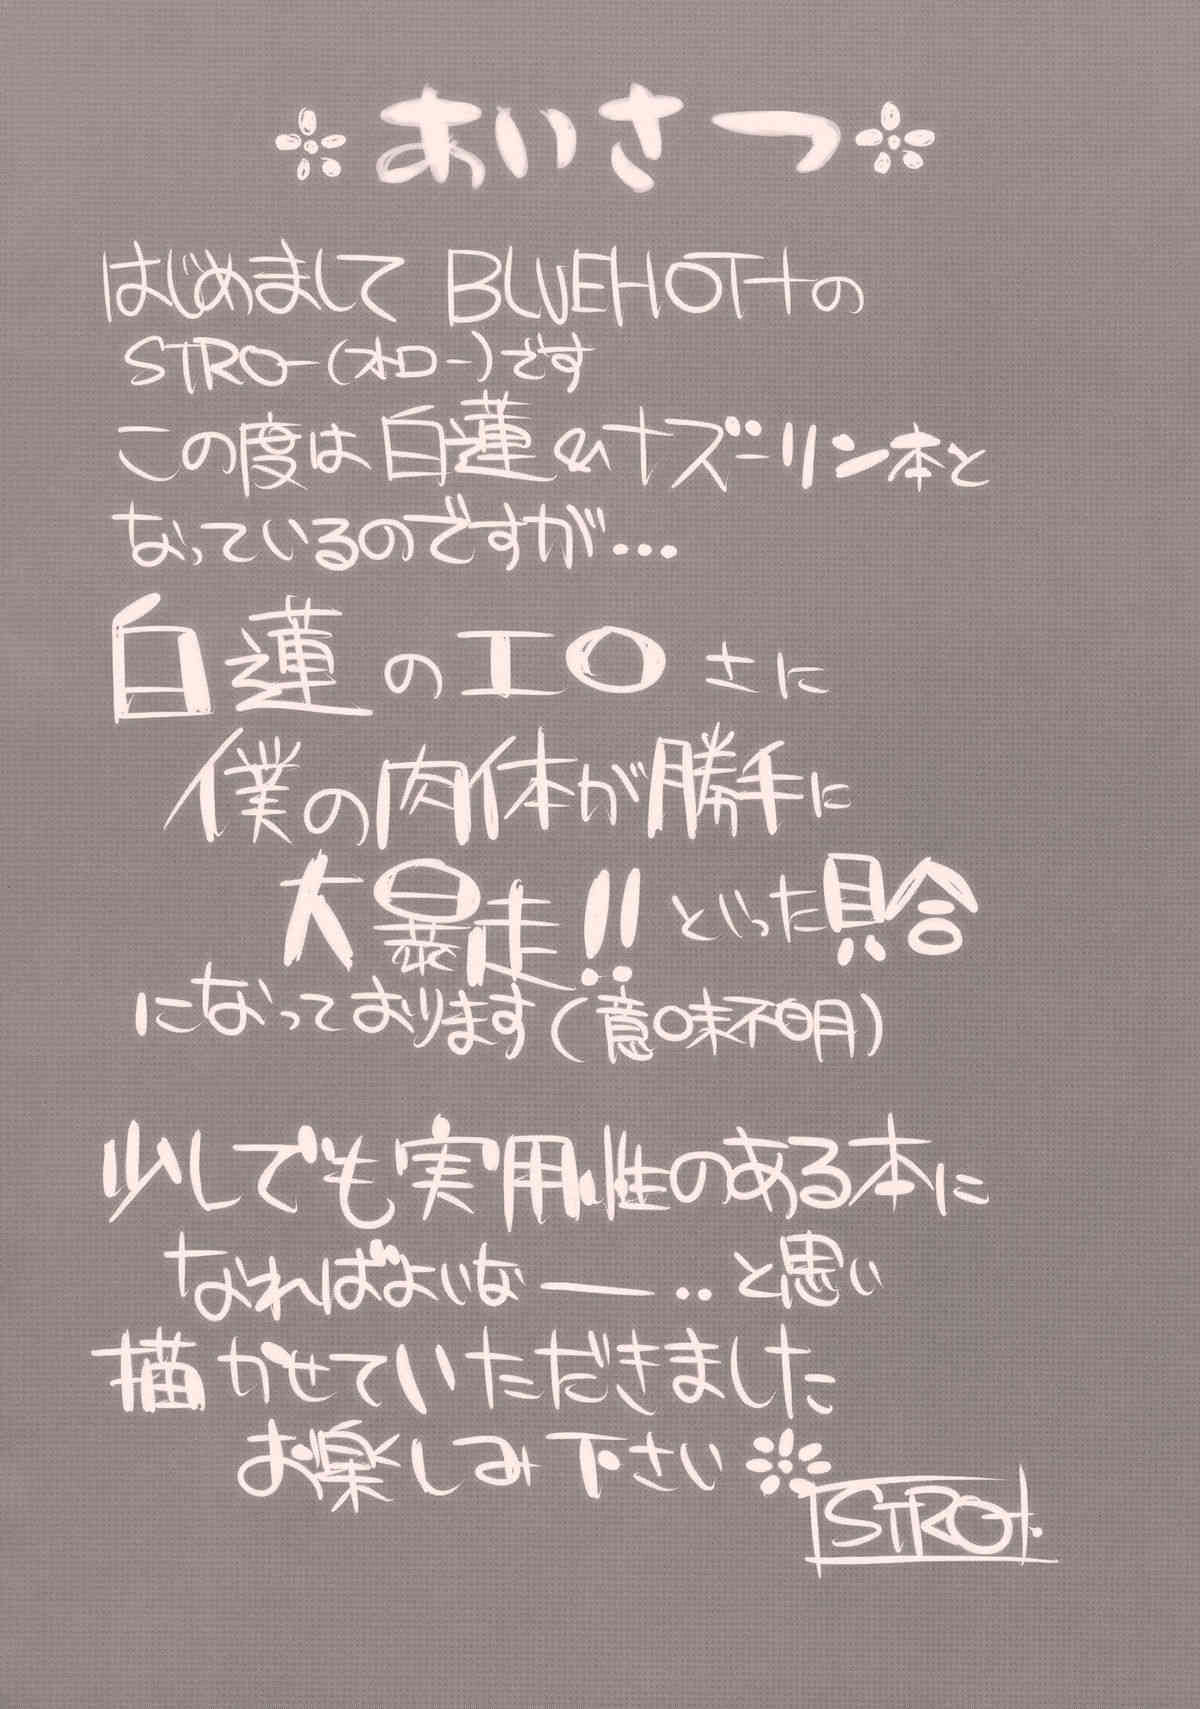 あいさつ
はじめまして BLUEHOT+の
STRO-(オロー)です
この度は白蓮&ナズーリン本と
なっているのですが…
白蓮のエロさに
僕の肉体が勝手に
大暴走!!といった具合
になっております(意味不明)
少しでも実用性のある本に
なればよいなー‥と思い
描かせていただきました
お楽しみ下さい
STRO-.